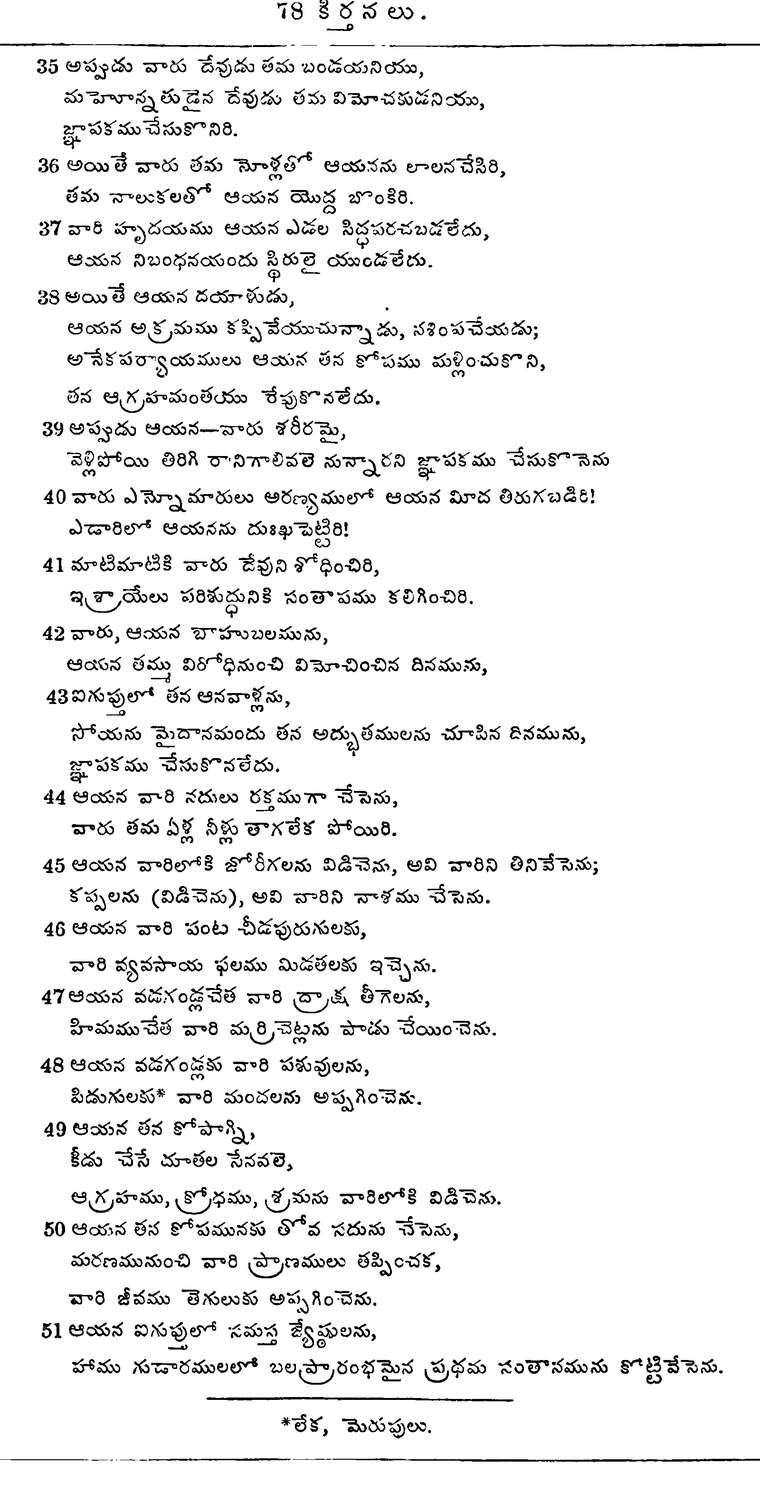 78 కీర్తనలు.
35 అప్పుడు వారు దేవుడు తమ బండయనియు,
మహోన్నతుడైన దేవుడు తమ విమోచకుడనియు,
జ్ఞాపకముచేసుకొనిరి.
36 అయితే వారు తమ నోళ్లతో ఆయనను లాలనచేసిరి,
తమ నాలుకలతో ఆయన యొద్ద బొంకిరి.
37 వారి హృదయము ఆయన ఎడల సిద్ధపరచబడలేదు,
ఆయన నిబంధనయందు స్థిరులై యుండలేదు.
38 అయితే ఆయన దయాళుడు,
ఆయన అక్రమము కప్పివేయుచున్నాడు, నశింపచేయడు;
అనేకపర్యాయములు ఆయన తన కోపము మళ్లించుకొని,
తన ఆగ్రహమంతయు రేపుకొనలేదు.
39 అప్పుడు ఆయన—వారు శరీరమై,
వెళ్లిపోయి తిరిగి రానిగాలివలె నున్నారని జ్ఞాపకము చేసుకొనెను
40 వారు ఎన్నోమారులు అరణ్యములో ఆయన మీద తిరుగబడిరి!
ఎడారిలో ఆయనను దుఃఖపెట్టిరి!
41 మాటిమాటికి వారు దేవుని శోధించిరి,
ఇశ్రాయేలు పరిశుద్ధునికి సంతాపము కలిగించిరి.
42 వారు, ఆయన బాహుబలమును,
ఆయన తమ్ము విరోధినుంచి విమోచించిన దినమును,
43 ఐగుప్తులో తన ఆనవాళ్లను,
సోయను మైదానమందు తన అద్భుతములను చూపిన దినమును,
జ్ఞాపకము చేసుకొనలేదు.
44 ఆయన వారి నదులు రక్తముగా చేసెను,
వారు తమ ఏళ్ల నీళ్లు తాగలేక పోయిరి.
45 ఆయన వారిలోకి జోరీగలను విడిచెను, అవి వారిని తినివేసెను;
కప్పలను (విడిచెను), అవి వారిని నాశము చేసెను.
46 ఆయన వారి పంట చీడపురుగులకు,
వారి వ్యవసాయ ఫలము మిడతలకు ఇచ్చెను.
47 ఆయన వడగండ్లచేత వారి ద్రాక్ష తీగెలను,
హిమముచేత వారి మర్రిచెట్లను పాడు చేయించెను.
48 ఆయన వడగండ్లకు వారి పశువులను,
పిడుగులకు* వారి మందలను అప్పగించెను.
49 ఆయన తన కోపాగ్ని,
కీడు చేసే దూతల సేనవలె,
ఆగ్రహము, క్రోధము, శ్రమను వారిలోకి విడిచెను.
50 ఆయన తన కోపమునకు తోవ సదును చేసెను,
మరణమునుంచి వారి ప్రాణములు తప్పించక,
వారి జీవము తెగులుకు అప్పగించెను.
51 ఆయన ఐగుప్తులో సమస్త జ్యేష్ఠులను,
హాము గుడారములలో బలప్రారంభమైన ప్రథమ సంతానమును కొట్టివేసెను.
*లేక, మెరుపులు.